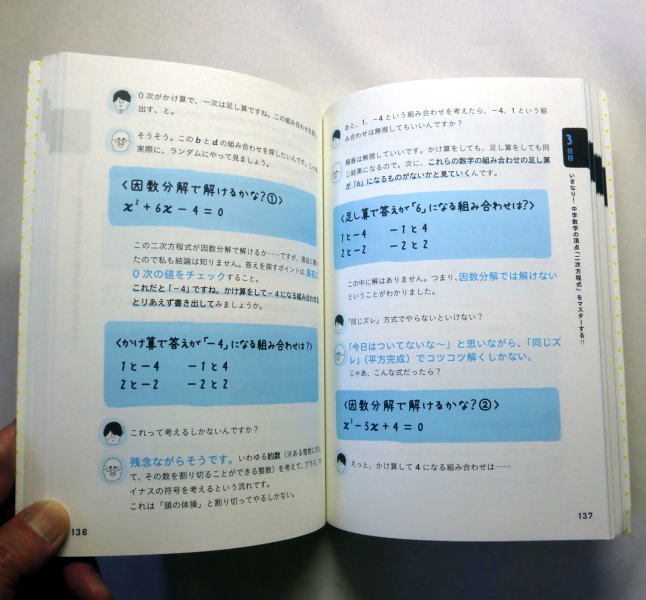 0次がかけ算で、一次は足し算ですね。この組み合わせを
出す、と。
そうそう。このbとdの組み合わせを探したいんです。
実際に、ランダムにやって見ましょう。
〈因数分解で解けるかな?①〉
x²+6x－4=0
この二次方程式が因数分解で解けるか……ですが、適当に
たので私も結論は知りません。答えを探すポイントは、最初に
0次の値をチェックすること。
これだと「－4」ですね。かけ算をして－4になる組み合わせを
とりあえず書き出してみましょうか。
〈かけ算で答えが「－4」になる組み合わせは?〉
1と－4　－1と4
2と－2　－2と2
これって考えるしかないんですか?
残念ながらそうです。いわゆる約数(※ある整数に
て、その数を割り切ることができる整数)を考えて、プラス、マ
イナスの符号を考えるという流れです。
これは「頭の体操」と割り切ってやるしかない。
136
あと、1、－4という組み合わせを考えたら、－4、1という組
み合わせは無視してもいいんですか?
順番は無視していいです。かけ算をしても、足し算をしても同
じ結果になるので。次に、これらの数字の組み合わせの足し算
が「6」になるものがないかと見ていくんです。
〈足し算で答えが「6」になる組み合わせは?〉
1と－4　－1と4
2と－2　－2と2
この中に解はありません。つまり、因数分解では解けない
ということがわかりました。
「同じズレ」方式でやらないといけない?
「今日はついてないな〜」と思いながら、「同じズ
レ」(平方完成)でコツコツ解くしかない。
じゃあ、こんな式だったら?
〈因数分解で解けるかな?②〉
x²－5x+4=0
えっと、かけ算して4になる組み合わせは……
137
3日目
いきなり!中学数学の頂点「二次方程式」をマスターする!!